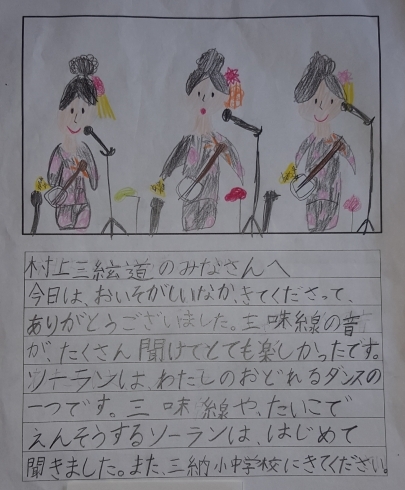 村上三絃道のみなさんへ
今日は、おいそがしいなか、きてくださって、
ありがとうございました。三味線の音
が、たくさん聞けてとても楽しかったです。
ソーランは、わたしのおどれるダンスの
一つです。三味線や、たいこで
えんそうするソーランは、はじめて
聞きました。また、三納小中学校にきてください。